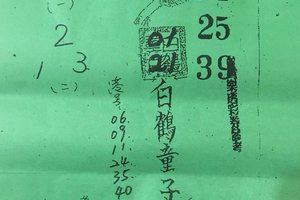 (一)
2
1 3
(二)
01
21
25
39
白鶴童子
壹号
06.
09.
11.
24.
35.
40